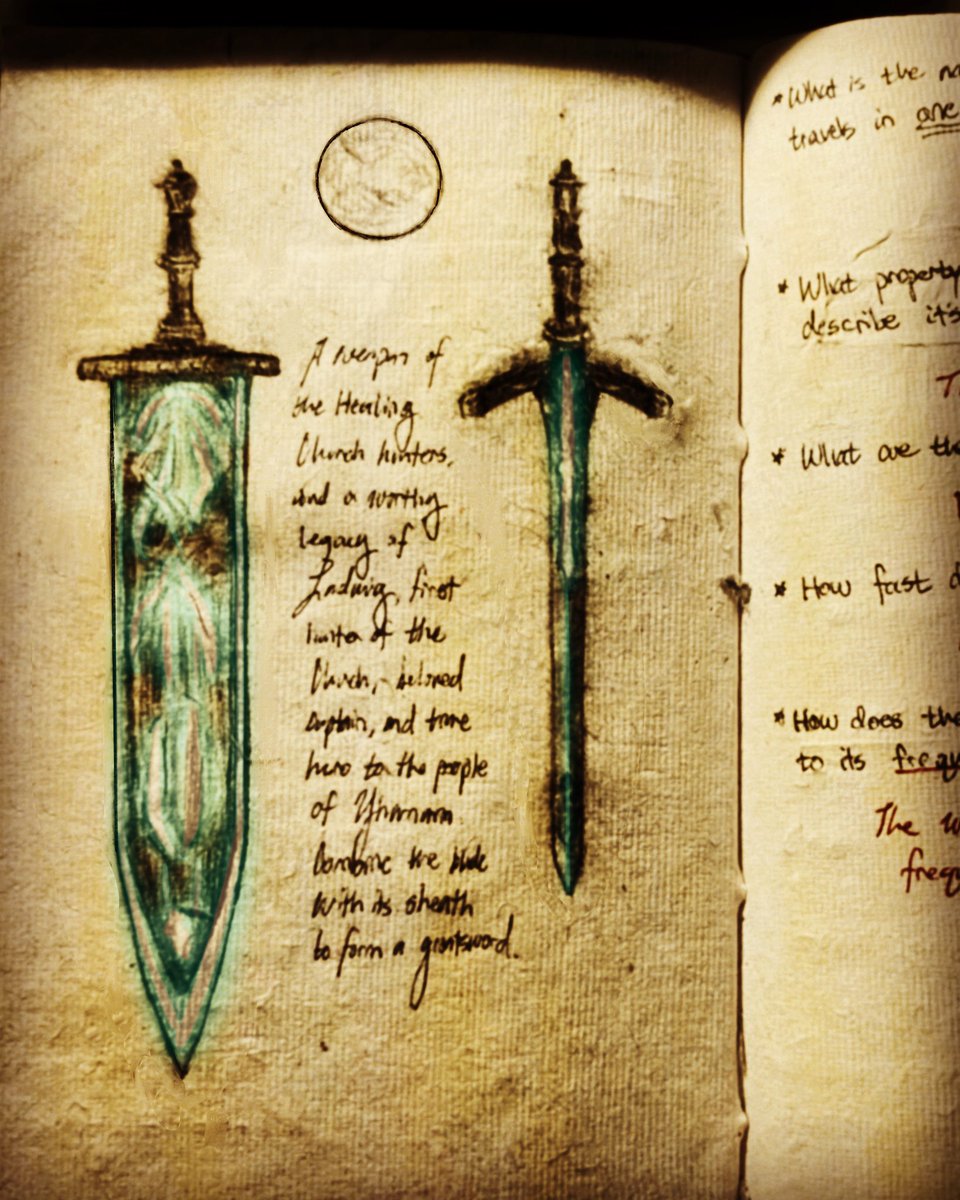 A weapon of
the Healing
Church hunters,
and a worthy
legacy of
Ludwig, first
hunter of the
Church, beloved
captain, and true
hero to the people
of Yharnam.
Combine the blade
with its sheath
to form a greatsword.
*What is the
travels in one
*What property
describe it's
*What are the
*How fast
*How does the
to its
The